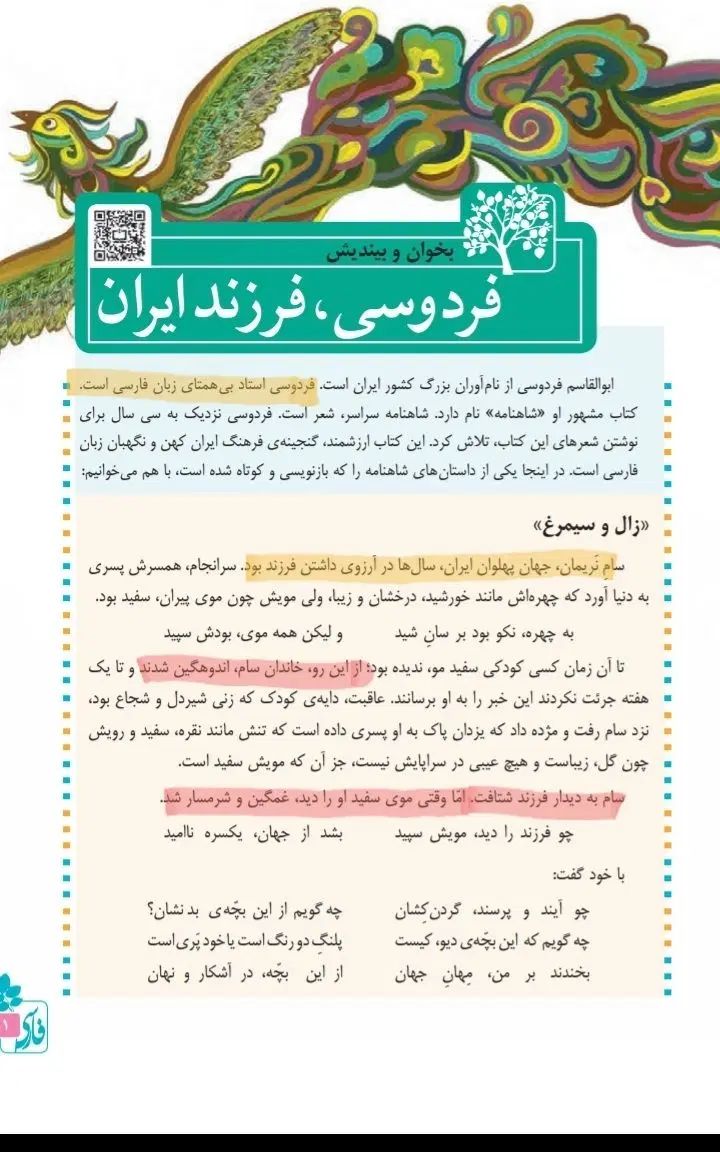 بخوان و بیندیش
فردوسی، فرزند ایران
ابوالقاسم فردوسی از نام‌آوران بزرگ کشور ایران است. فردوسی استاد بی‌همتای زبان فارسی است.
کتاب مشهور او «شاهنامه» نام دارد. شاهنامه سراسر، شعر است. فردوسی نزدیک به سی سال برای
نوشتن شعرهای این کتاب، تلاش کرد. این کتاب ارزشمند، گنجینه‌ی فرهنگ ایران کهن و نگهبان زبان
فارسی است. در اینجا یکی از داستان‌های شاهنامه را که بازنویسی و کوتاه شده است، با هم می‌خوانیم:
«زال و سیمرغ»
سام نَریمان، جهان پهلوان ایران، سال‌ها در آرزوی داشتن فرزند بود. سرانجام، همسرش پسری
به دنیا آورد که چهره‌اش مانند خورشید، درخشان و زیبا، ولی مویش چون موی پیران، سفید بود.
به چهره، نکو بود بر سانِ شید و لیکن همه موی، بودش سپید
تا آن زمان کسی کودکی سفید مو، ندیده بود؛ از این رو، خاندان سام، اندوهگین شدند و تا یک
هفته جرئت نکردند این خبر را به او برسانند. عاقبت، دایه‌ی کودک که زنی شیردل و شجاع بود،
نزد سام رفت و مژده داد که یزدان پاک به او پسری داده است که تنش مانند نقره، سفید و رویش
چون گل، زیباست و هیچ عیبی در سراپایش نیست، جز آن که مویش سفید است.
سام به دیدار فرزند شتافت. امّا وقتی موی سفید او را دید، غمگین و شرمسار شد.
چو فرزند را دید، مویش سپید بشد از جهان، یکسره ناامید
با خود گفت:
چو آیند و پرسند، گردن‌کِشان چه گویم از این بچّه‌ی بد نشان؟
چه گویم که این بچّه‌ی دیو، کیست پلنگِ دو رنگ است یا خود پَری است
بخندند بر من، مِهانِ جهان از این بچّه، در آشکار و نهان
فارسی
۱